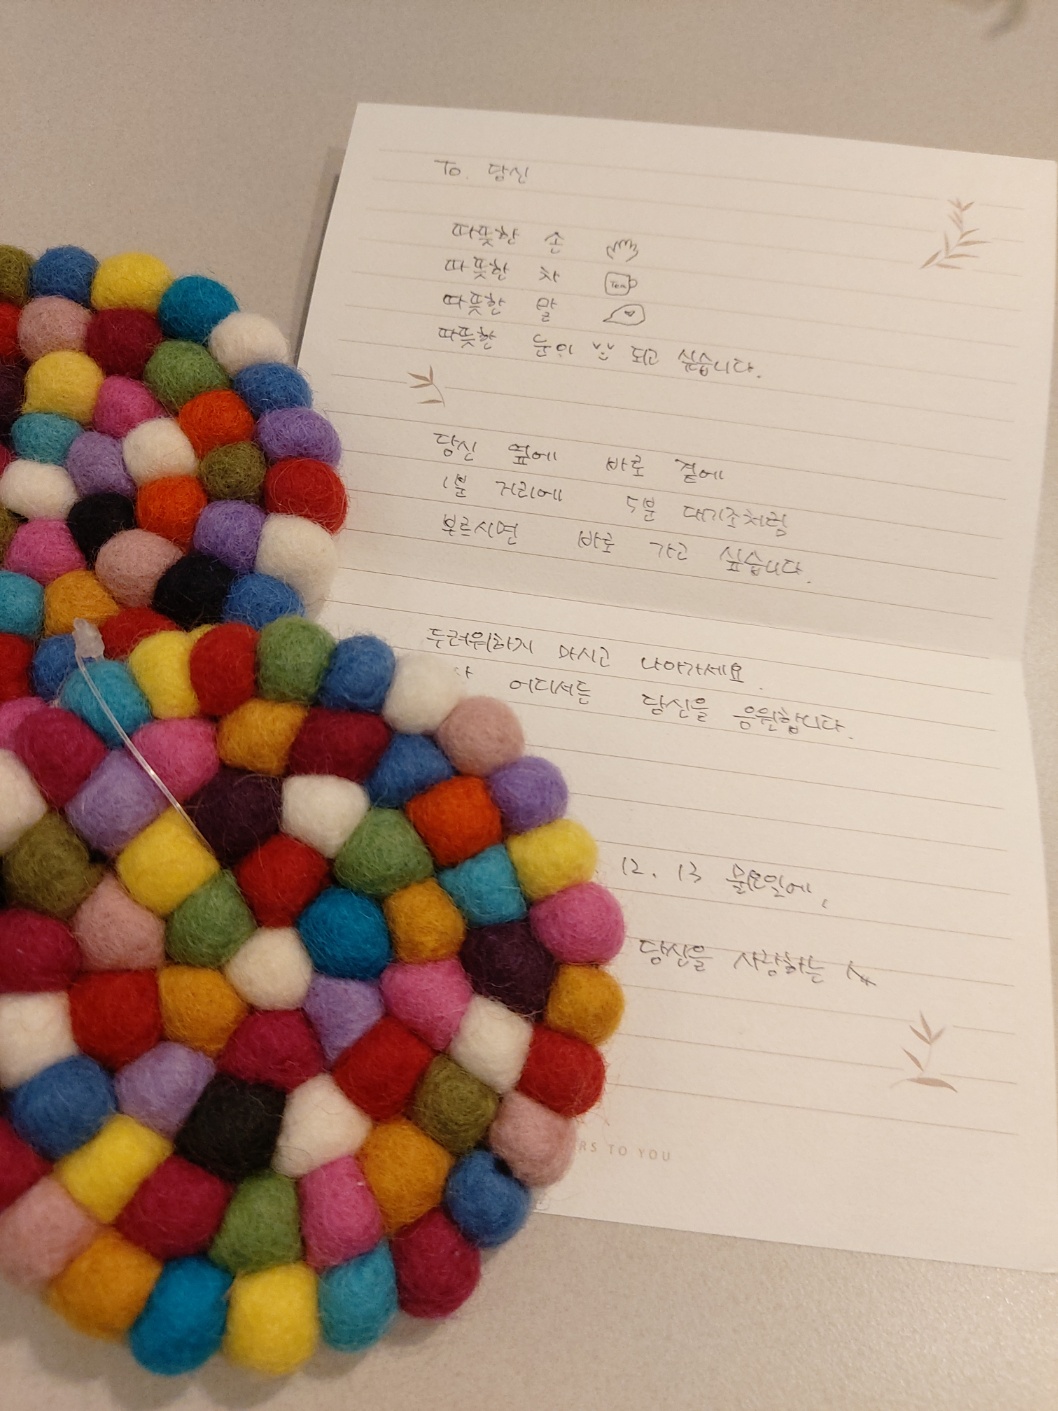 To. 당신
따뜻한 손
따뜻한 차 Tea
따뜻한 말
따뜻한 눈이 되고 싶습니다.
당신 옆에 바로 곁에
1분 거리에 5분 대기조처럼
부르시면 바로 가고 싶습니다.
두려워하지 마시고 나아가세요.
어디서든 당신을 응원합니다.
12. 13
당신을 사랑하는
TO YOU